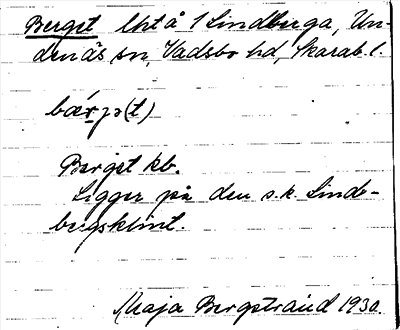 Berget lht å 1 Lindberga, Un-
denäs sn, Vadsbo hd, Skarab. l.
bærjə(t)
Berget kb.
Ligger på den s.k. Linde-
bergsklint.
Maja Bergstrand 1930.